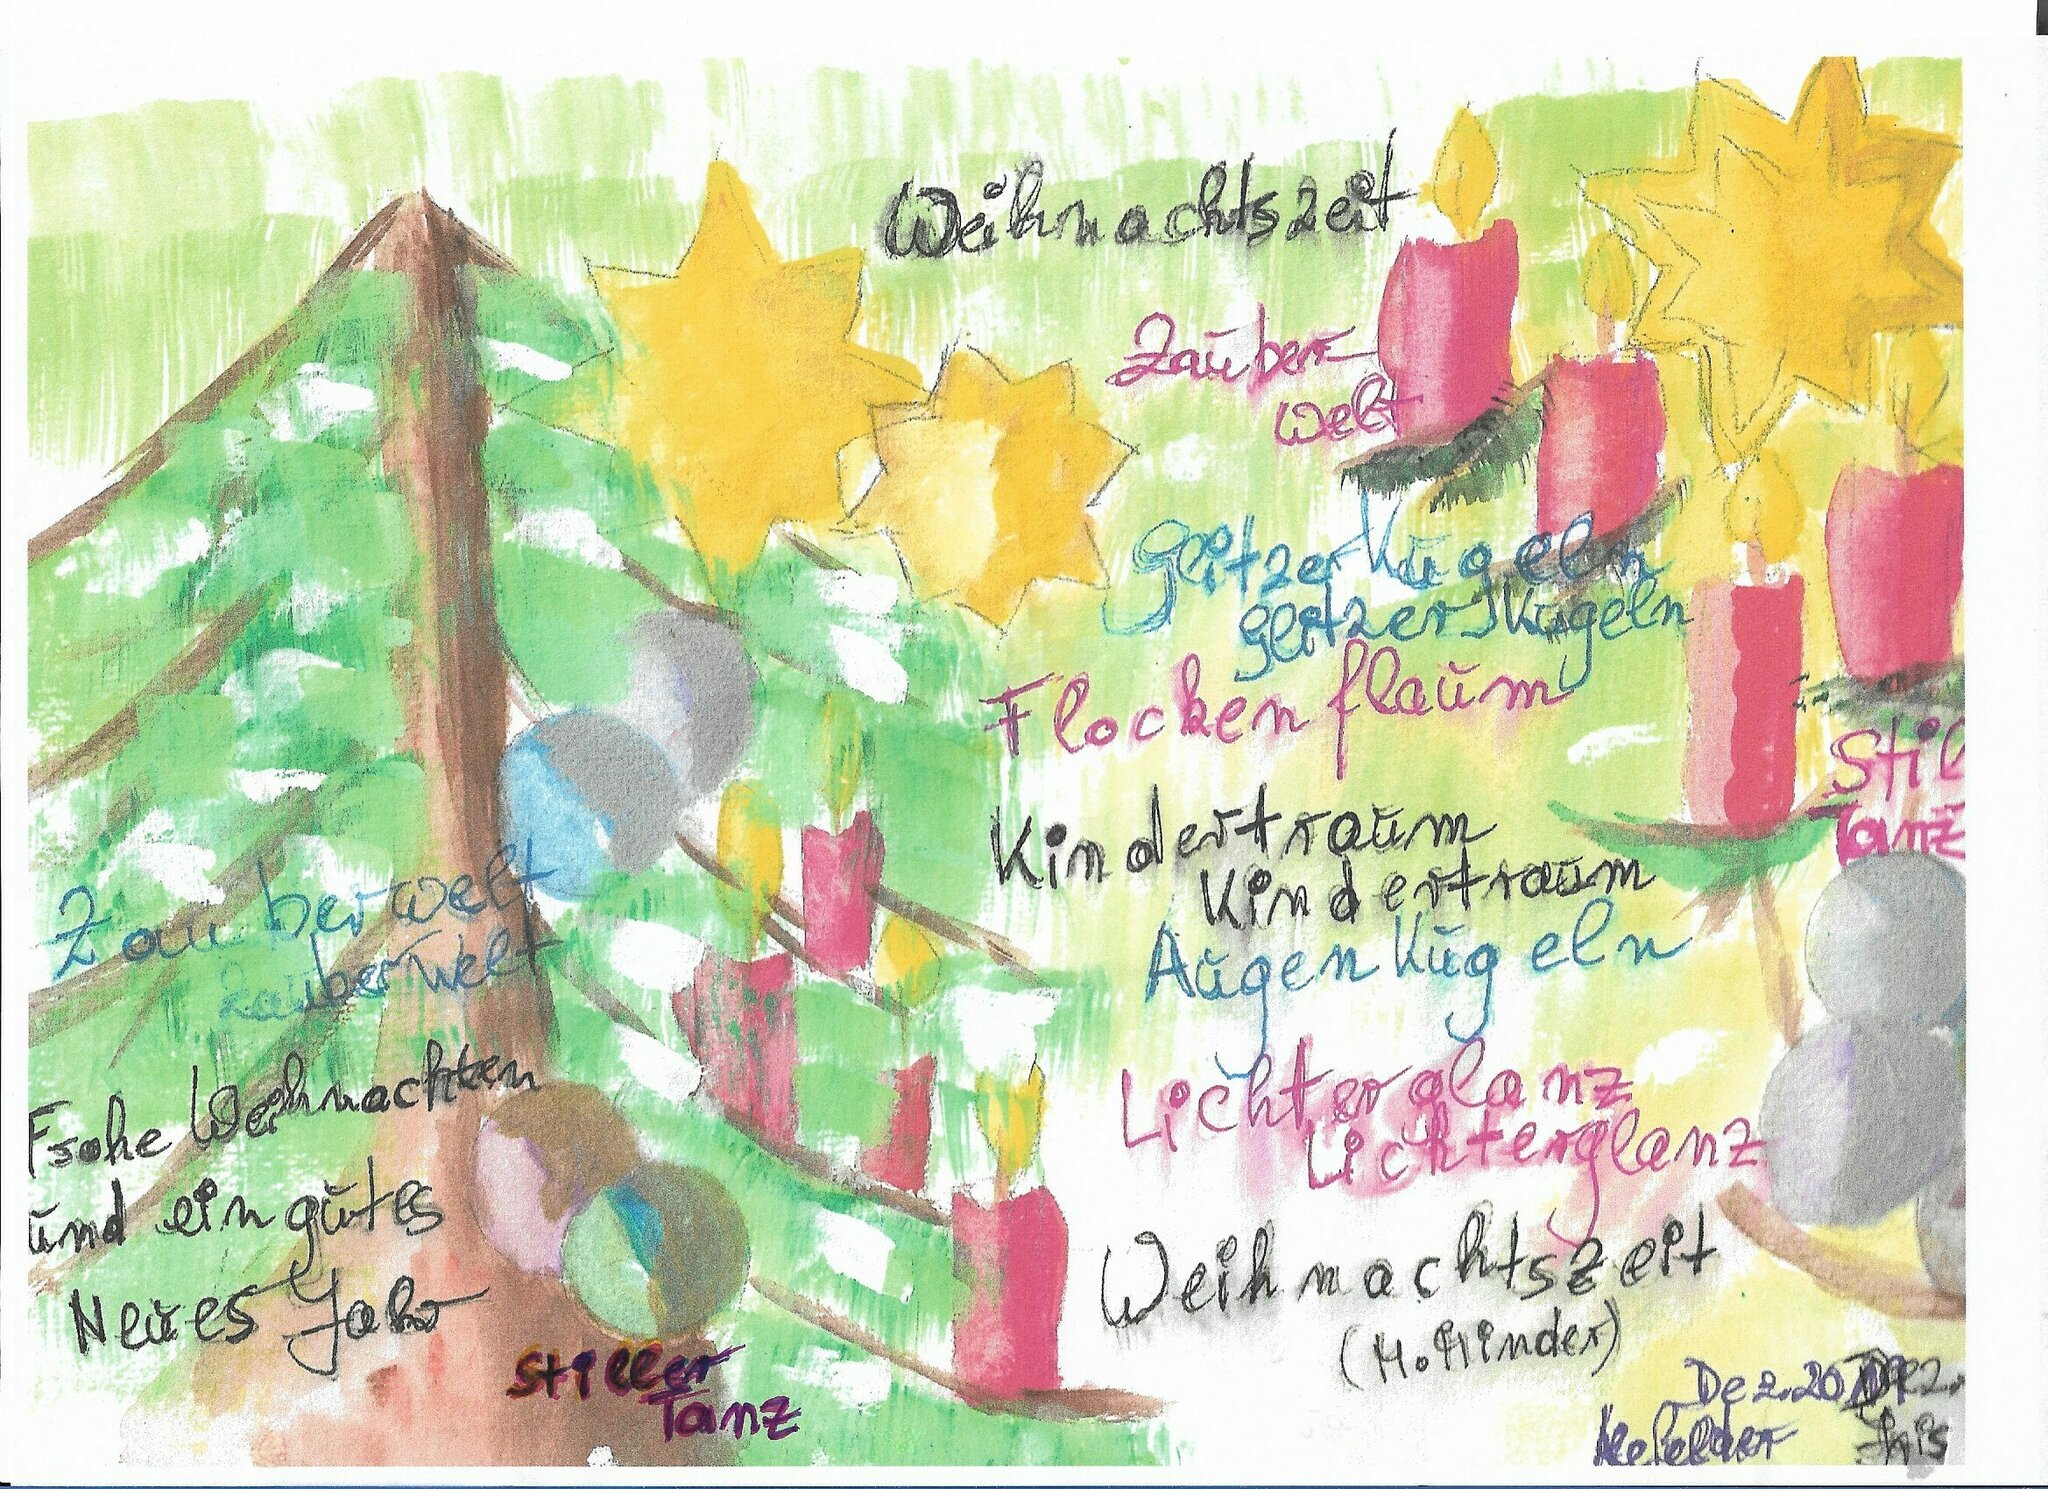 Weihnachtszeit
Zauber
welt
Glitzerkugeln
glitzerkugeln
Flockenflaum
Stil
Tanz
Kindertraum
Kindertraum
Augenkugeln
Lichterglanz
Lichterglanz
Weihnachtszeit
(M. Minder)
Dez. 2019
Zauberwelt
Zauberwelt
Frohe Weihnachten
und ein gutes
Neues Jahr
Stiller
Tanz